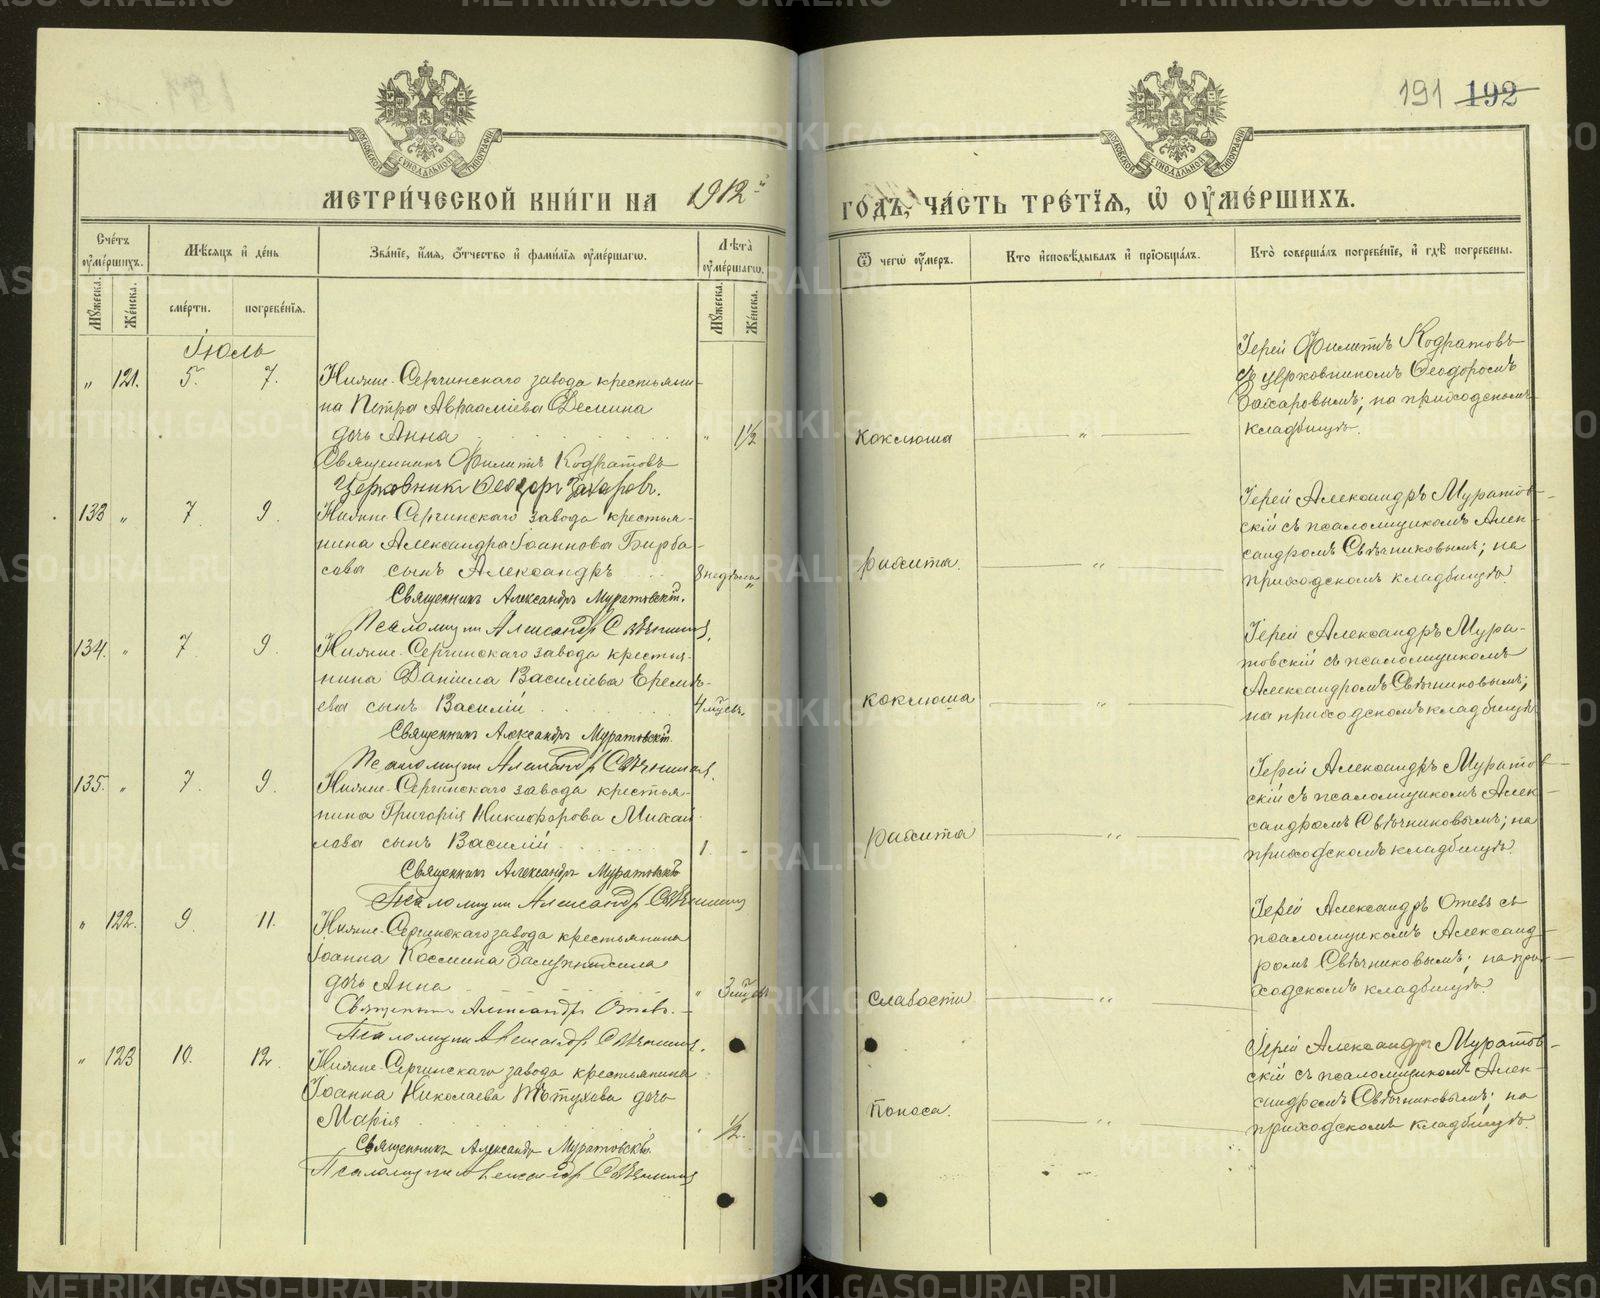 191 192
МОСКОВСКОЙ СѴНОДАЛЬНОЙ ТИПОГРАФІИ
МОСКОВСКОЙ СѴНОДАЛЬНОЙ ТИПОГРАФІИ
МЕТРИ́ЧЕСКОЙ КНИ́ГИ НА 1912й
ГО́ДЪ, ЧА́СТЬ ТРЕ́ТІѦ, Ѡ҆ ОУ҆МЕ́РШИХЪ.
Сче́тъ оу҆ме́ршихъ.
Мѣ́сяцъ и҆ де́нь
Зва́нїе, и҆́мѧ, ѻ҆́тчество и҆ фами́лїѧ оу҆ме́ршагѡ.
Лѣ́та̀ оу҆ме́ршагѡ.
Му́жеска.
Же́нска.
сме́рти.
погребе́нїѧ.
Му́жеска.
Же́нска.
Ѿ чегѡ̀ оу҆́меръ.
Кто̀ и҆сповѣ́дывалъ и҆ прїѻбща́лъ.
Кто̀ соверша́лъ погребе́нїе, и҆ гдѣ̀ погребены̀.
Іюль
" 121. 5. 7. Нижне-Сергинскаго завода крестьяни-
на Петра Авраамiева Демина
дочь Анна " 1½
Священникъ Филиппъ Кодратовъ
Церковникъ Ѳеодоръ Захаровъ.
коклюша "
Іерей Филиппъ Кодратовъ
съ церковникомъ Ѳеодоромъ
Захаровымъ; на приходскомъ
кладбищѣ.
133 " 7. 9. Нижне-Сергинскаго завода крестья-
нина Александра Іоаннова Бирба-
сова сынъ Александръ 8 недѣль "
Священникъ Александръ Муратовскій.
Псаломщикъ Александръ Свѣчниковъ.
рахита. "
Іерей Александръ Муратов-
скій съ псаломщикомъ Алек-
сандромъ Свѣчниковымъ; на
приходскомъ кладбищѣ.
134. " 7. 9. Нижне-Сергинскаго завода крестья-
нина Даніила Василіева Еремѣ-
ева сынъ Василій 4 мѣсяц.
Священникъ Александръ Муратовскій.
Псаломщикъ Александръ Свѣчниковъ.
коклюша "
Іерей Александръ Мура-
товскій съ псаломщикомъ
Александромъ Свѣчниковымъ;
на приходскомъ кладбищѣ
135. " 7. 9. Нижне-Сергинскаго завода крестья-
нина Григорія Никифорова Михай-
лова сынъ Василій 1. "
Священникъ Александръ Муратовскій
Псаломщикъ Александръ Свѣчниковъ
рахита "
Іерей Александръ Муратов-
скій съ псаломщикомъ Алек-
сандромъ Свѣчниковымъ; на
приходскомъ кладбищѣ.
" 122. 9. 11. Нижне-Сергинскаго завода крестьянина
Іоанна Космина
дочь Анна " 3 мѣсяц
Священникъ Александръ Отевъ.
Псаломщикъ Александръ Свѣчниковъ.
слабости "
Іерей Александръ Отевъ съ
псаломщикомъ Александ-
ромъ Свѣчниковымъ; на при-
ходскомъ кладбищѣ.
" 123 10. 12. Нижне-Сергинскаго завода крестьянина
Іоанна Николаева Пѣтухова дочь
Марія ½.
Священникъ Александръ Муратовскій.
Псаломщикъ Александръ Свѣчниковъ
поноса. "
Іерей Александръ Муратов-
скій съ псаломщикомъ Алек-
сандромъ Свѣчниковымъ; на
приходскомъ кладбищѣ.
METRIKI.GASO-URAL.RU